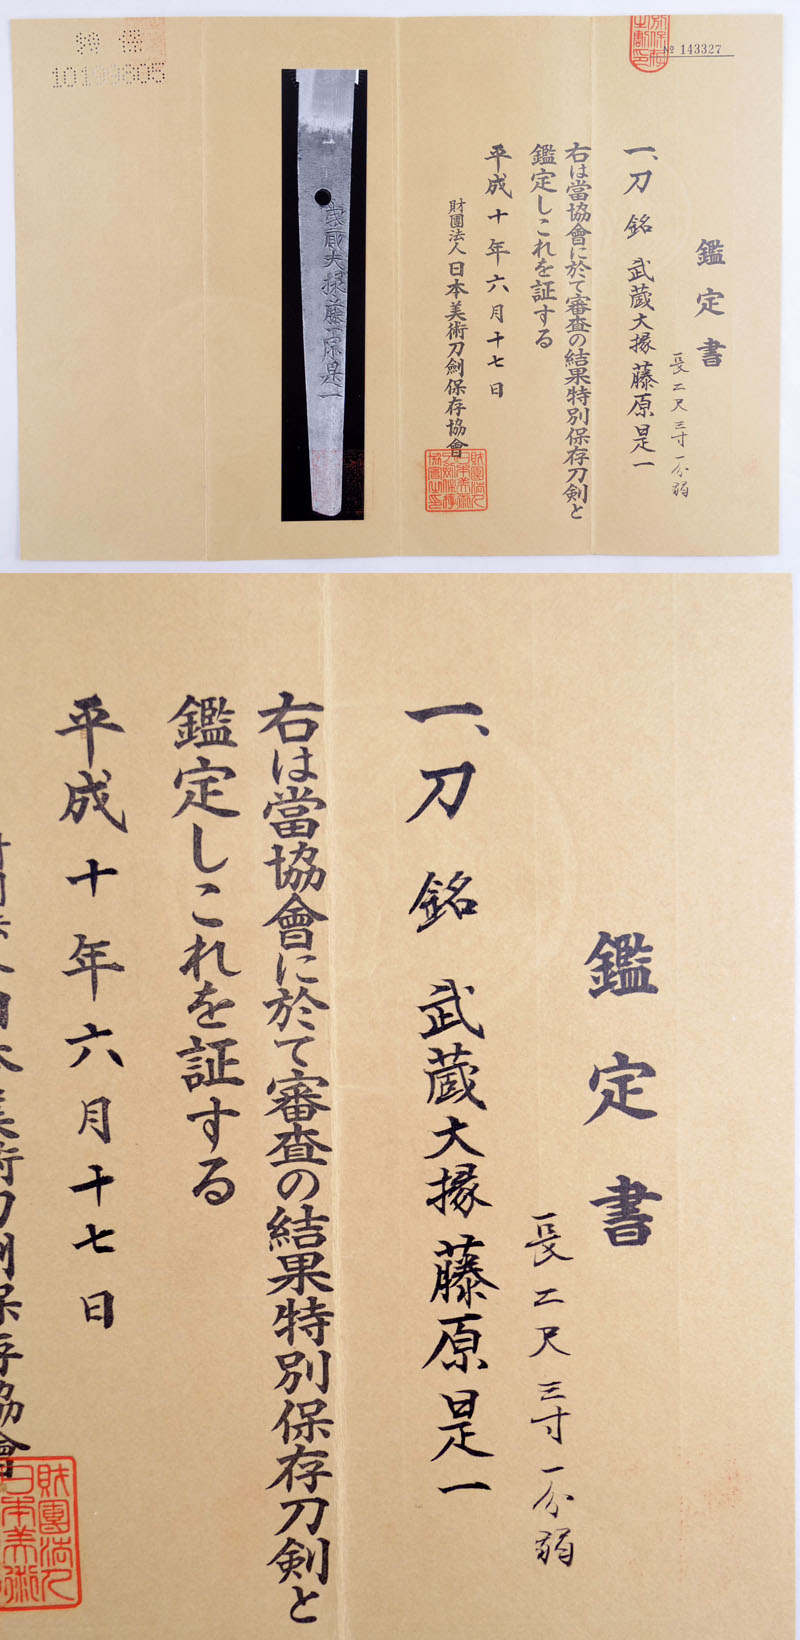 特保
№ 143327
鑑定書
長二尺三寸一分弱
一、刀 銘 武蔵大掾藤原是一
右は當協會に於て審査の結果特別保存刀剣と
鑑定しこれを証する
平成十年六月十七日
財團法人日本美術刀劍保存協會
武蔵大掾藤原是一
鑑定書
長二尺三寸一分弱
一、刀 銘 武蔵大掾藤原是一
右は當協會に於て審査の結果特別保存刀剣と
鑑定しこれを証する
平成十年六月十七日
日本美術刀劍保存協會
財團法人
日本美術